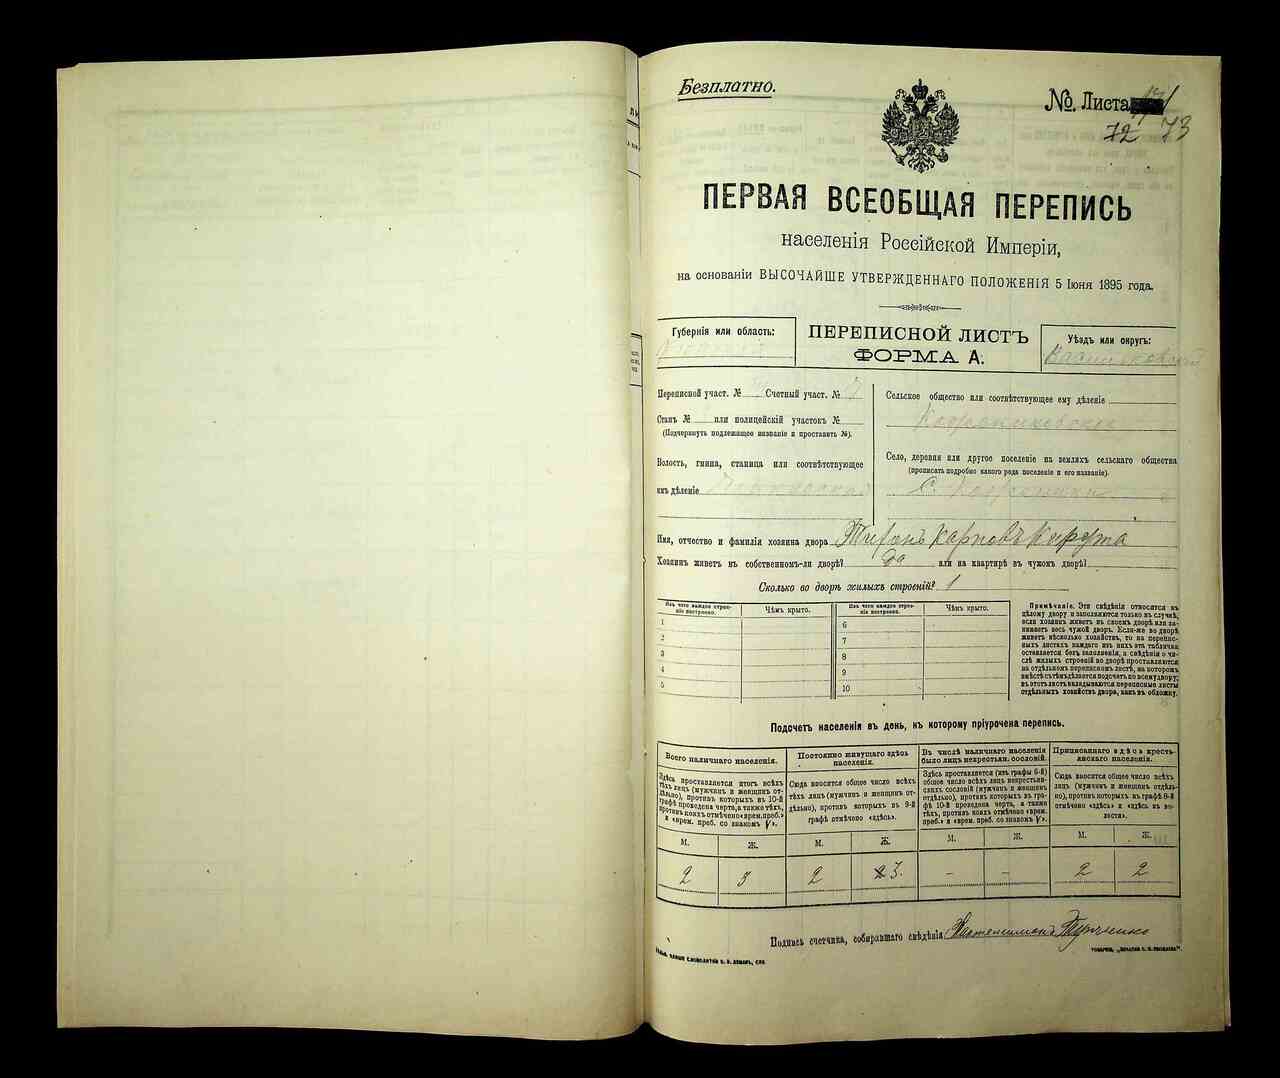 Безплатно.
№ Листа
72 73
ПЕРВАЯ ВСЕОБЩАЯ ПЕРЕПИСЬ
населенія Россійской Имперіи,
на основаніи ВЫСОЧАЙШЕ УТВЕРЖДЕННАГО ПОЛОЖЕНІЯ 5 Іюня 1895 года.
Губернія или область:
ПЕРЕПИСНОЙ ЛИСТЪ
ФОРМА А.
Уѣздъ или округъ:
Васильковскій
Переписной участ. № Счетный участ. №
Станъ № или полицейскій участокъ №
(Подчеркнуть подлежащее названіе и проставить №).
Волость, гмина, станица или соотвѣтствующее
имъ дѣленіе
Сельское общество или соотвѣтствующее ему дѣленіе
Село, деревня или другое поселеніе на земляхъ сельскаго общества
(прописать подробно какого рода поселеніе и его названіе).
С.
Имя, отчество и фамилія хозяина двора Карповъ
Хозяинъ живетъ въ собственномъ-ли дворѣ? да или на квартирѣ въ чужомъ дворѣ?
Сколько во дворѣ жилыхъ строеній? 1
Изъ чего каждое строеніе построено. Чѣмъ крыто. Изъ чего каждое строеніе построено. Чѣмъ крыто.
1 6
2 7
3 8
4 9
5 10
Примѣчаніе. Эти свѣдѣнія относятся къ
цѣлому двору и заполняются только въ случаѣ,
если хозяинъ живетъ въ своемъ дворѣ или занимаетъ весь чужой дворъ. Если-же во дворѣ
живетъ нѣсколько хозяйствъ, то на переписныхъ листахъ каждаго изъ нихъ эта табличка
оставляется безъ заполненія, а свѣдѣнія о числѣ жилыхъ строеній во дворѣ проставляются
на отдѣльномъ переписномъ листѣ, на которомъ
вмѣстѣ съ тѣмъ дѣлается подсчетъ по всему двору;
въ этотъ листъ вкладываются переписные листы
отдѣльныхъ хозяйствъ двора, какъ въ обложку.
Подсчетъ населенія въ день, къ которому пріурочена перепись.
Всего наличнаго населенія.
Здѣсь проставляется итогъ всѣхъ
лицъ (мужчинъ и женщинъ отдѣльно), противъ которыхъ въ 10-й
графѣ проведена черта, а также тѣхъ,
противъ коихъ отмѣчено «врем. преб.»
и «врем. преб. со знакомъ V».
Постоянно живущаго здѣсь
населенія.
Сюда вносится общее число всѣхъ
тѣхъ лицъ (мужчинъ и женщинъ отдѣльно), противъ которыхъ въ 9-й
графѣ отмѣчено «здѣсь».
Въ числѣ наличнаго населенія
было лицъ некрестьян. сословій.
Здѣсь проставляется (изъ графы 6-й)
общее число всѣхъ лицъ некрестьянскихъ сословій (мужчинъ и женщинъ
отдѣльно), противъ которыхъ въ графѣ 10-й проведена черта, а также
тѣхъ, противъ коихъ отмѣчено «врем.
преб.» и «врем. преб. со знакомъ V».
Приписаннаго здѣсь крестьянскаго населенія.
Сюда вносится общее число всѣхъ
лицъ (мужчинъ и женщинъ отдѣльно), противъ коихъ въ графѣ 8-й
отмѣчено «здѣсь» и «здѣсь въ волости».
М. Ж. М. Ж. М. Ж. М. Ж.
2 3 2 3. - - 2 2
Подпись счетчика, собиравшаго свѣдѣнія